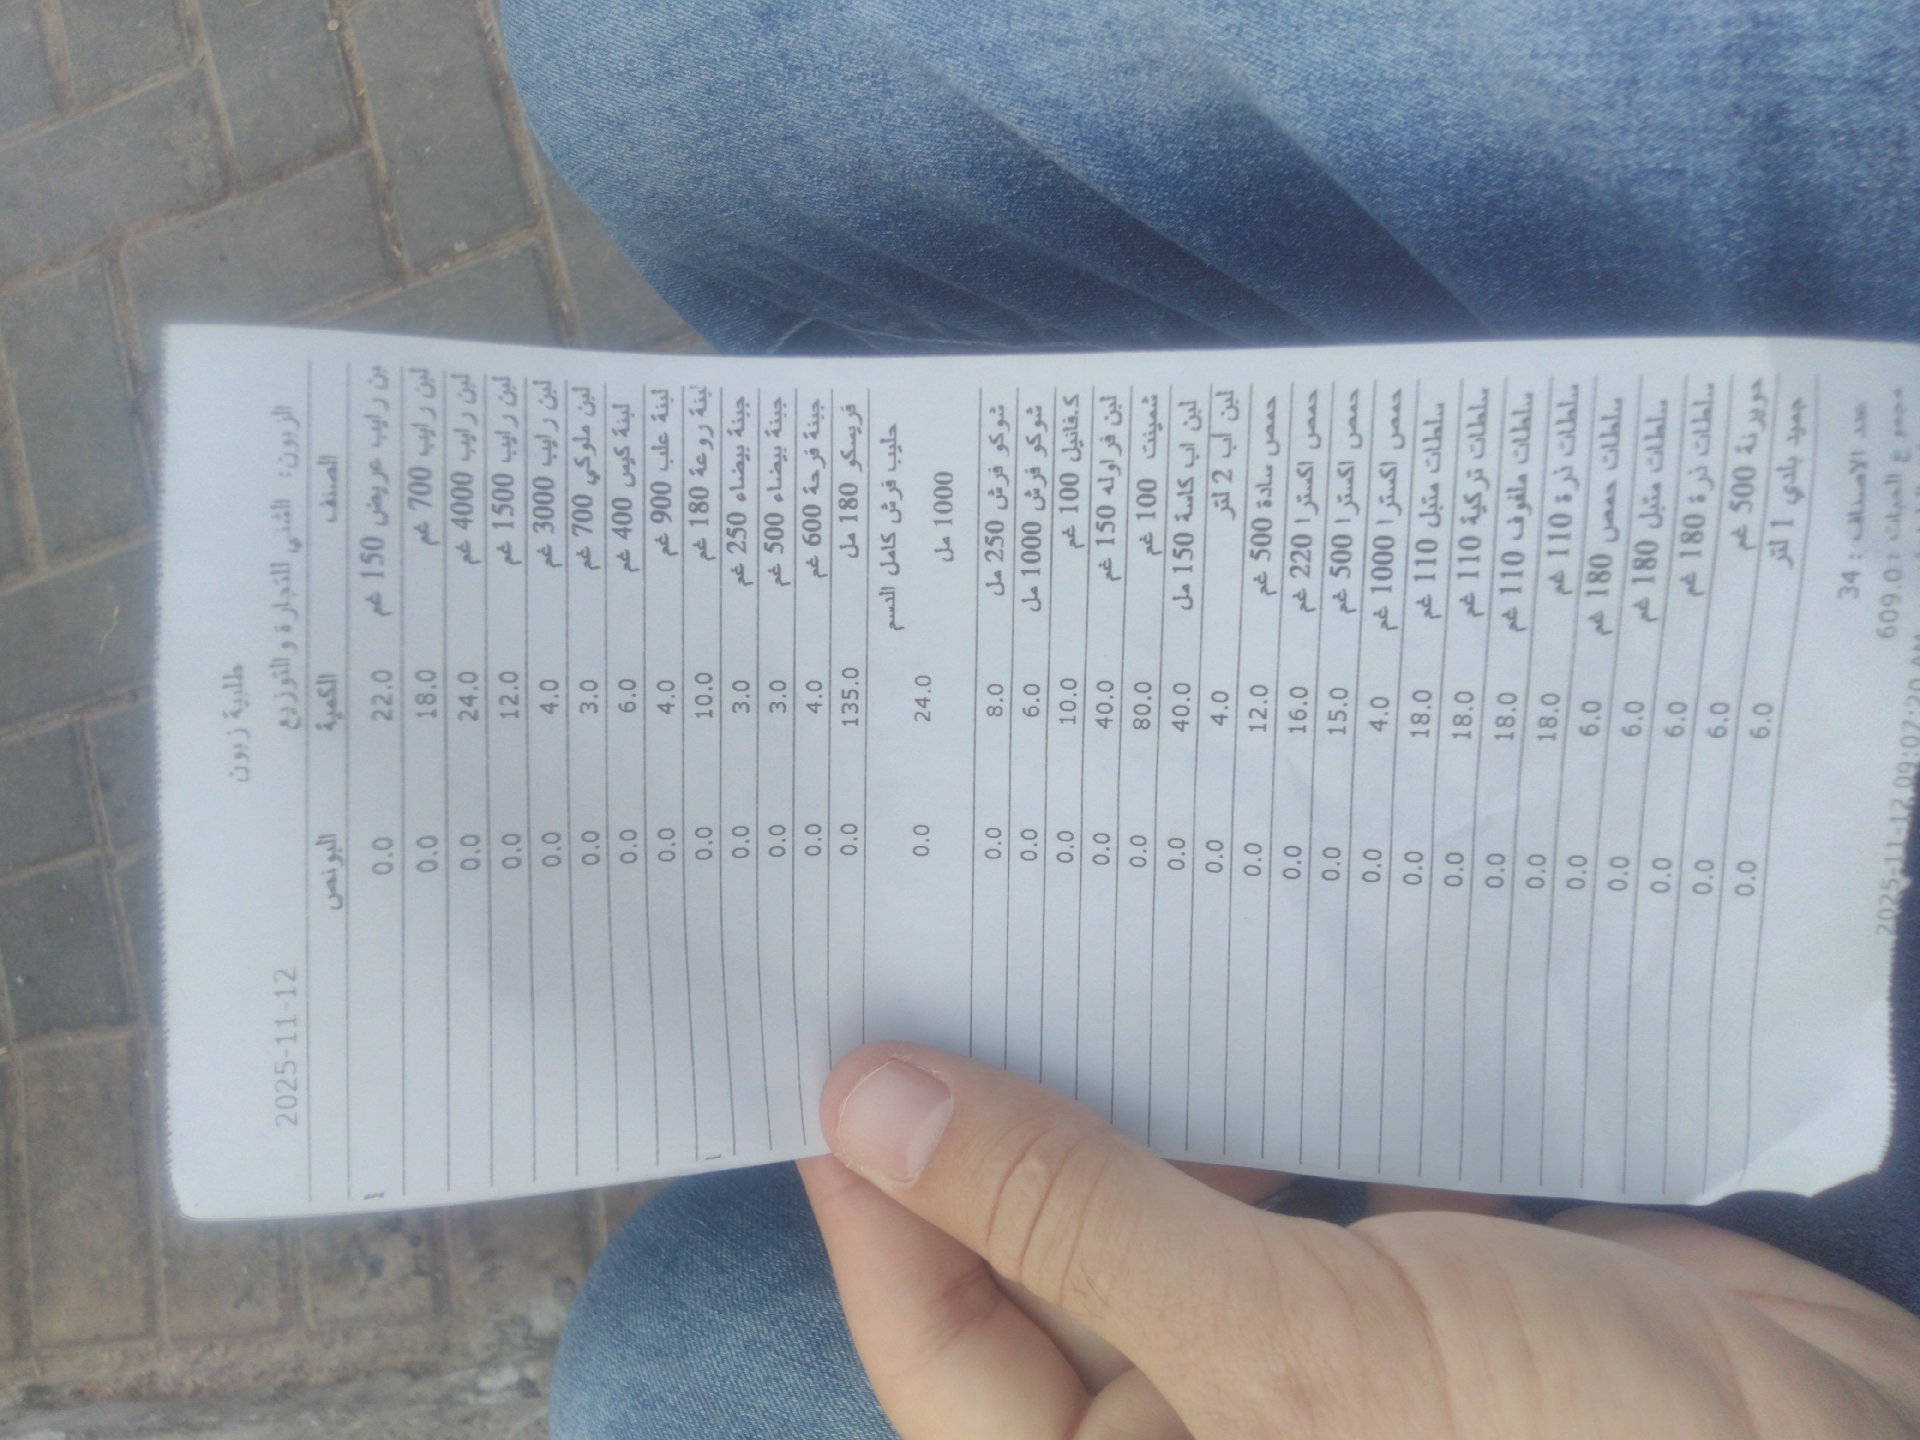 طلبية زبون
الزبون: الشني للتجارة والتوزيع 2025-11-12
الصنف الكمية البونص
لبن رايب عريض 150 غم 22.0 0.0
لبن رايب 700 غم 18.0 0.0
لبن رايب 4000 غم 24.0 0.0
لبن رايب 1500 غم 12.0 0.0
لبن رايب 3000 غم 4.0 0.0
لبن ملوكي 700 غم 3.0 0.0
لبنة كيس 400 غم 6.0 0.0
لبنة علب 900 غم 4.0 0.0
لبنة روعة 180 غم 10.0 0.0
جبنة بيضاء 250 غم 3.0 0.0
جبنة بيضاء 500 غم 3.0 0.0
جبنة فرحة 600 غم 4.0 0.0
فريسكو 180 مل 135.0 0.0
حليب فرش كامل الدسم
1000 مل 24.0 0.0
شوكو فرش 250 مل 8.0 0.0
شوكو فرش 1000 مل 6.0 0.0
ك.فانيل 100 غم 10.0 0.0
لبن فراوله 150 غم 40.0 0.0
شمينت 100 غم 80.0 0.0
لبن اب كاسة 150 مل 40.0 0.0
لبن اب 2 لتر 4.0 0.0
حمص سادة 500 غم 12.0 0.0
حمص اكسترا 220 غم 16.0 0.0
حمص اكسترا 500 غم 15.0 0.0
حمص اكسترا 1000 غم 4.0 0.0
سلطات متبل 110 غم 18.0 0.0
سلطات تركية 110 غم 18.0 0.0
سلطات ملفوف 110 غم 18.0 0.0
سلطات ذرة 110 غم 18.0 0.0
سلطات حمص 180 غم 6.0 0.0
سلطات متبل 180 غم 6.0 0.0
سلطات ذرة 180 غم 6.0 0.0
500 غم 6.0 0.0
جميد بلدي 1 لتر 6.0 0.0
عدد الاصناف : 34
مجموع الحبات : 609.0
2025-11-12 09:07:20 AM